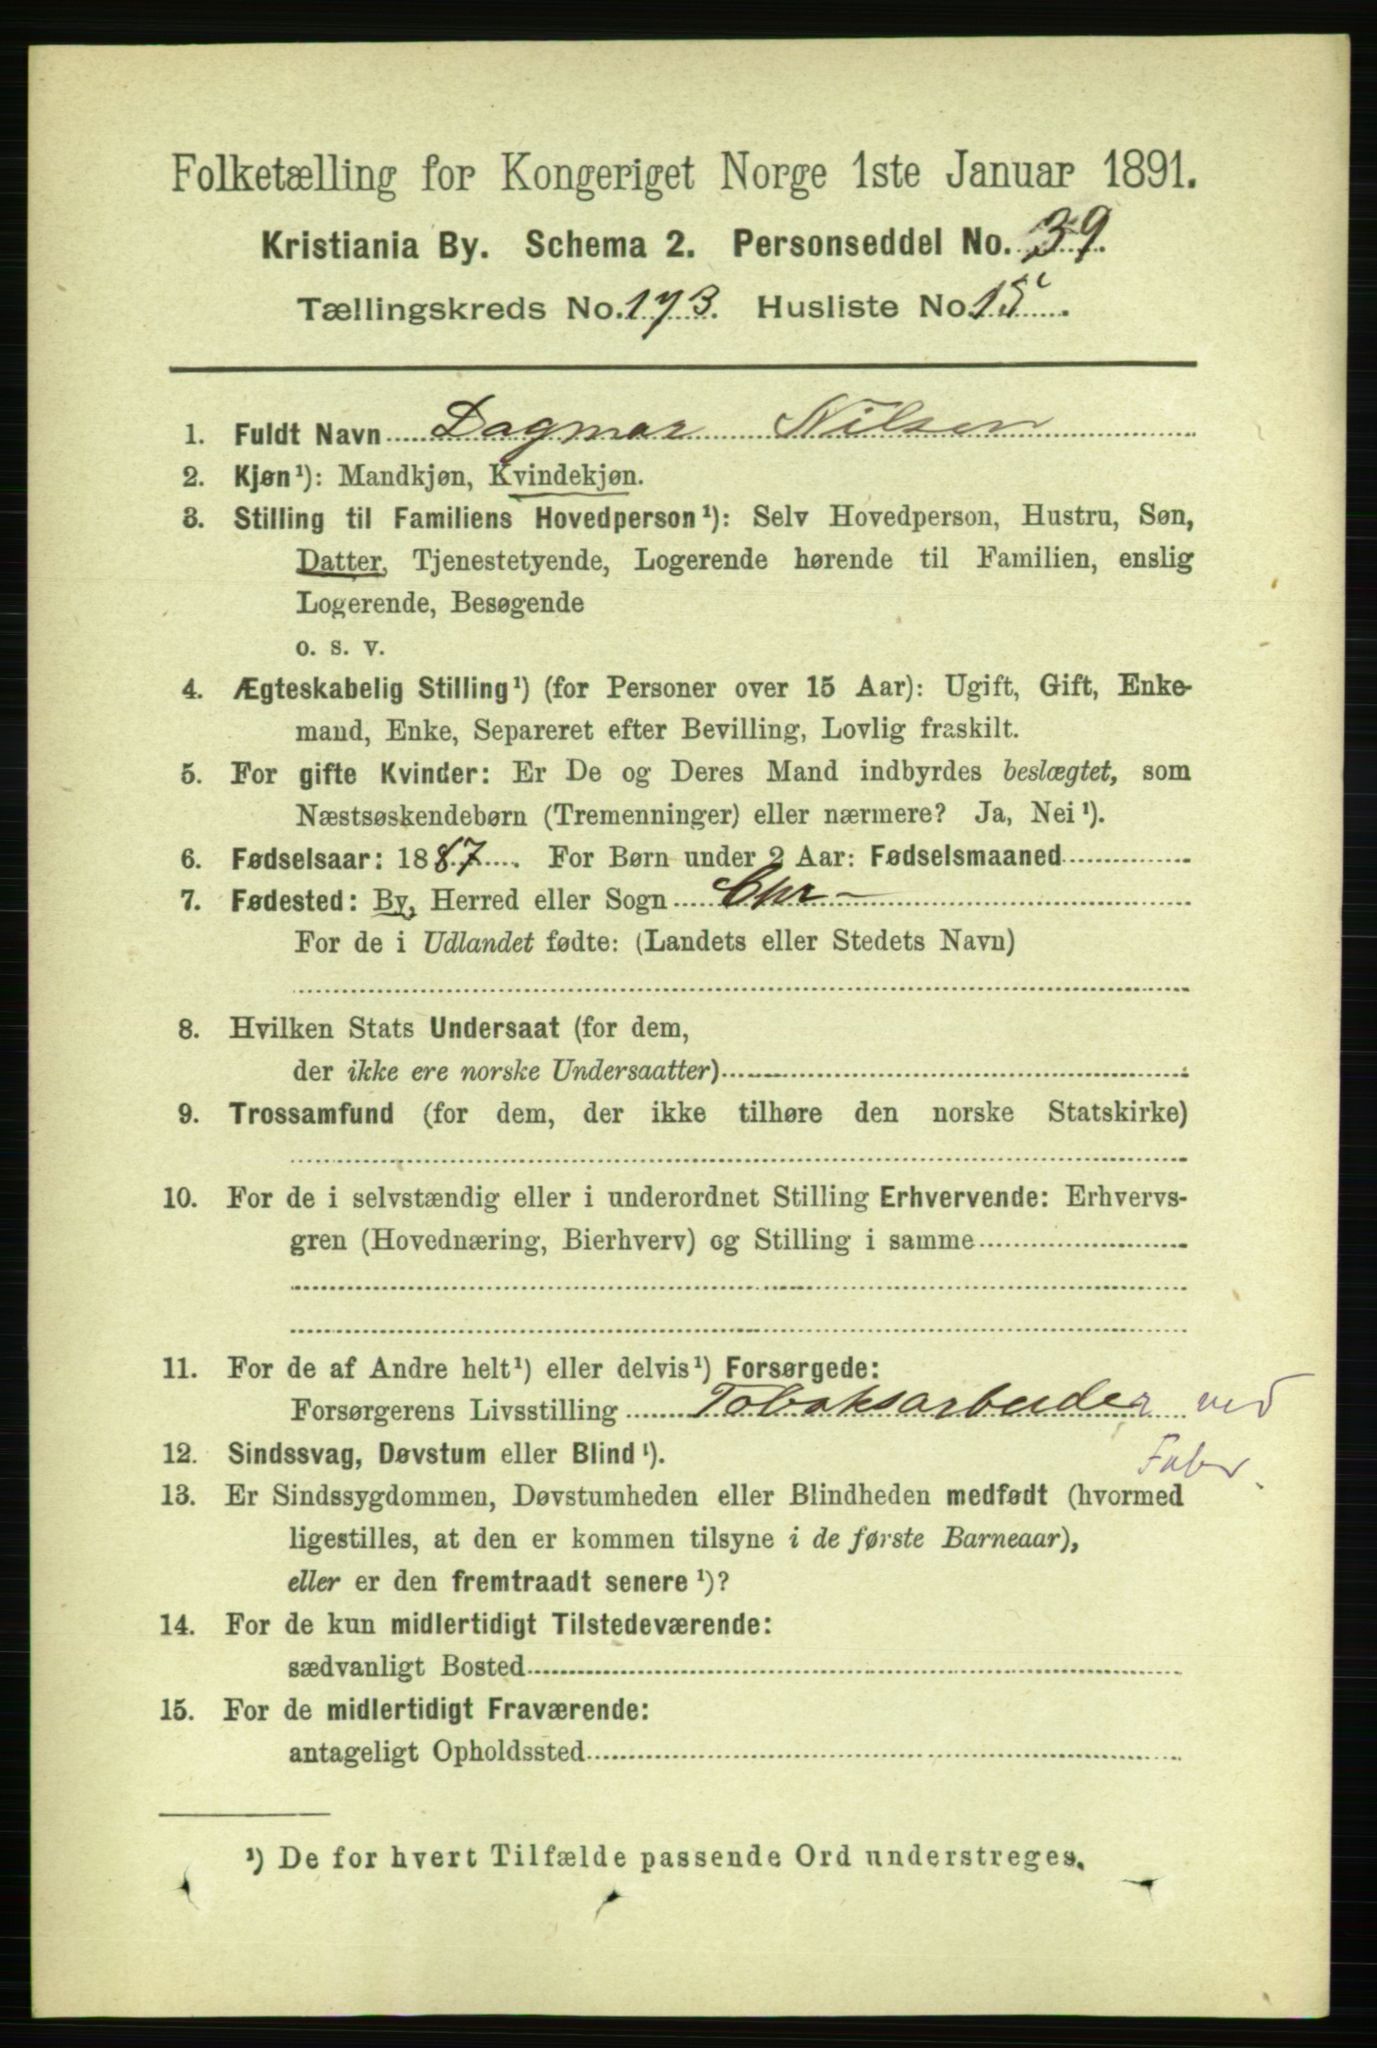 Folketælling for Kongeriget Norge 1ste Januar 1891.
Kristiania By. Schema 2. Personseddel No. 39.
Tællingskreds No. 173. Husliste No. 15.
1. Fuldt Navn Dagmar Nilsen
2. Kjøn¹): Mandkjøn, Kvindekjøn.
3. Stilling til Familiens Hovedperson¹): Selv Hovedperson, Hustru, Søn,
Datter, Tjenestetyende, Logerende hørende til Familien, enslig
Logerende, Besøgende
o. s. v.
4. Ægteskabelig Stilling¹) (for Personer over 15 Aar): Ugift, Gift, Enke-
mand, Enke, Separeret efter Bevilling, Lovlig fraskilt.
5. For gifte Kvinder: Er De og Deres Mand indbyrdes beslægtet, som
Næstsøskendebørn (Tremenninger) eller nærmere? Ja, Nei¹).
6. Fødselsaar: 1887. For Børn under 2 Aar: Fødselsmaaned
7. Fødested: By, Herred eller Sogn Chr-
For de i Udlandet fødte: (Landets eller Stedets Navn)
8. Hvilken Stats Undersaat (for dem,
der ikke ere norske Undersaatter)
9. Trossamfund (for dem, der ikke tilhøre den norske Statskirke)
10. For de i selvstændig eller i underordnet Stilling Erhvervende: Erhvervs-
gren (Hovednæring, Bierhverv) og Stilling i samme
11. For de af Andre helt¹) eller delvis¹) Forsørgede:
Forsørgerens Livsstilling Tobaksarbeider ved
Fabr.
12. Sindssvag, Døvstum eller Blind¹).
13. Er Sindssygdommen, Døvstumheden eller Blindheden medfødt (hvormed
ligestilles, at den er kommen tilsyne i de første Barneaar),
eller er den fremtraadt senere¹)?
14. For de kun midlertidigt Tilstedeværende:
sædvanligt Bosted
15. For de midlertidigt Fraværende:
antageligt Opholdssted
¹) De for hvert Tilfælde passende Ord understreges.